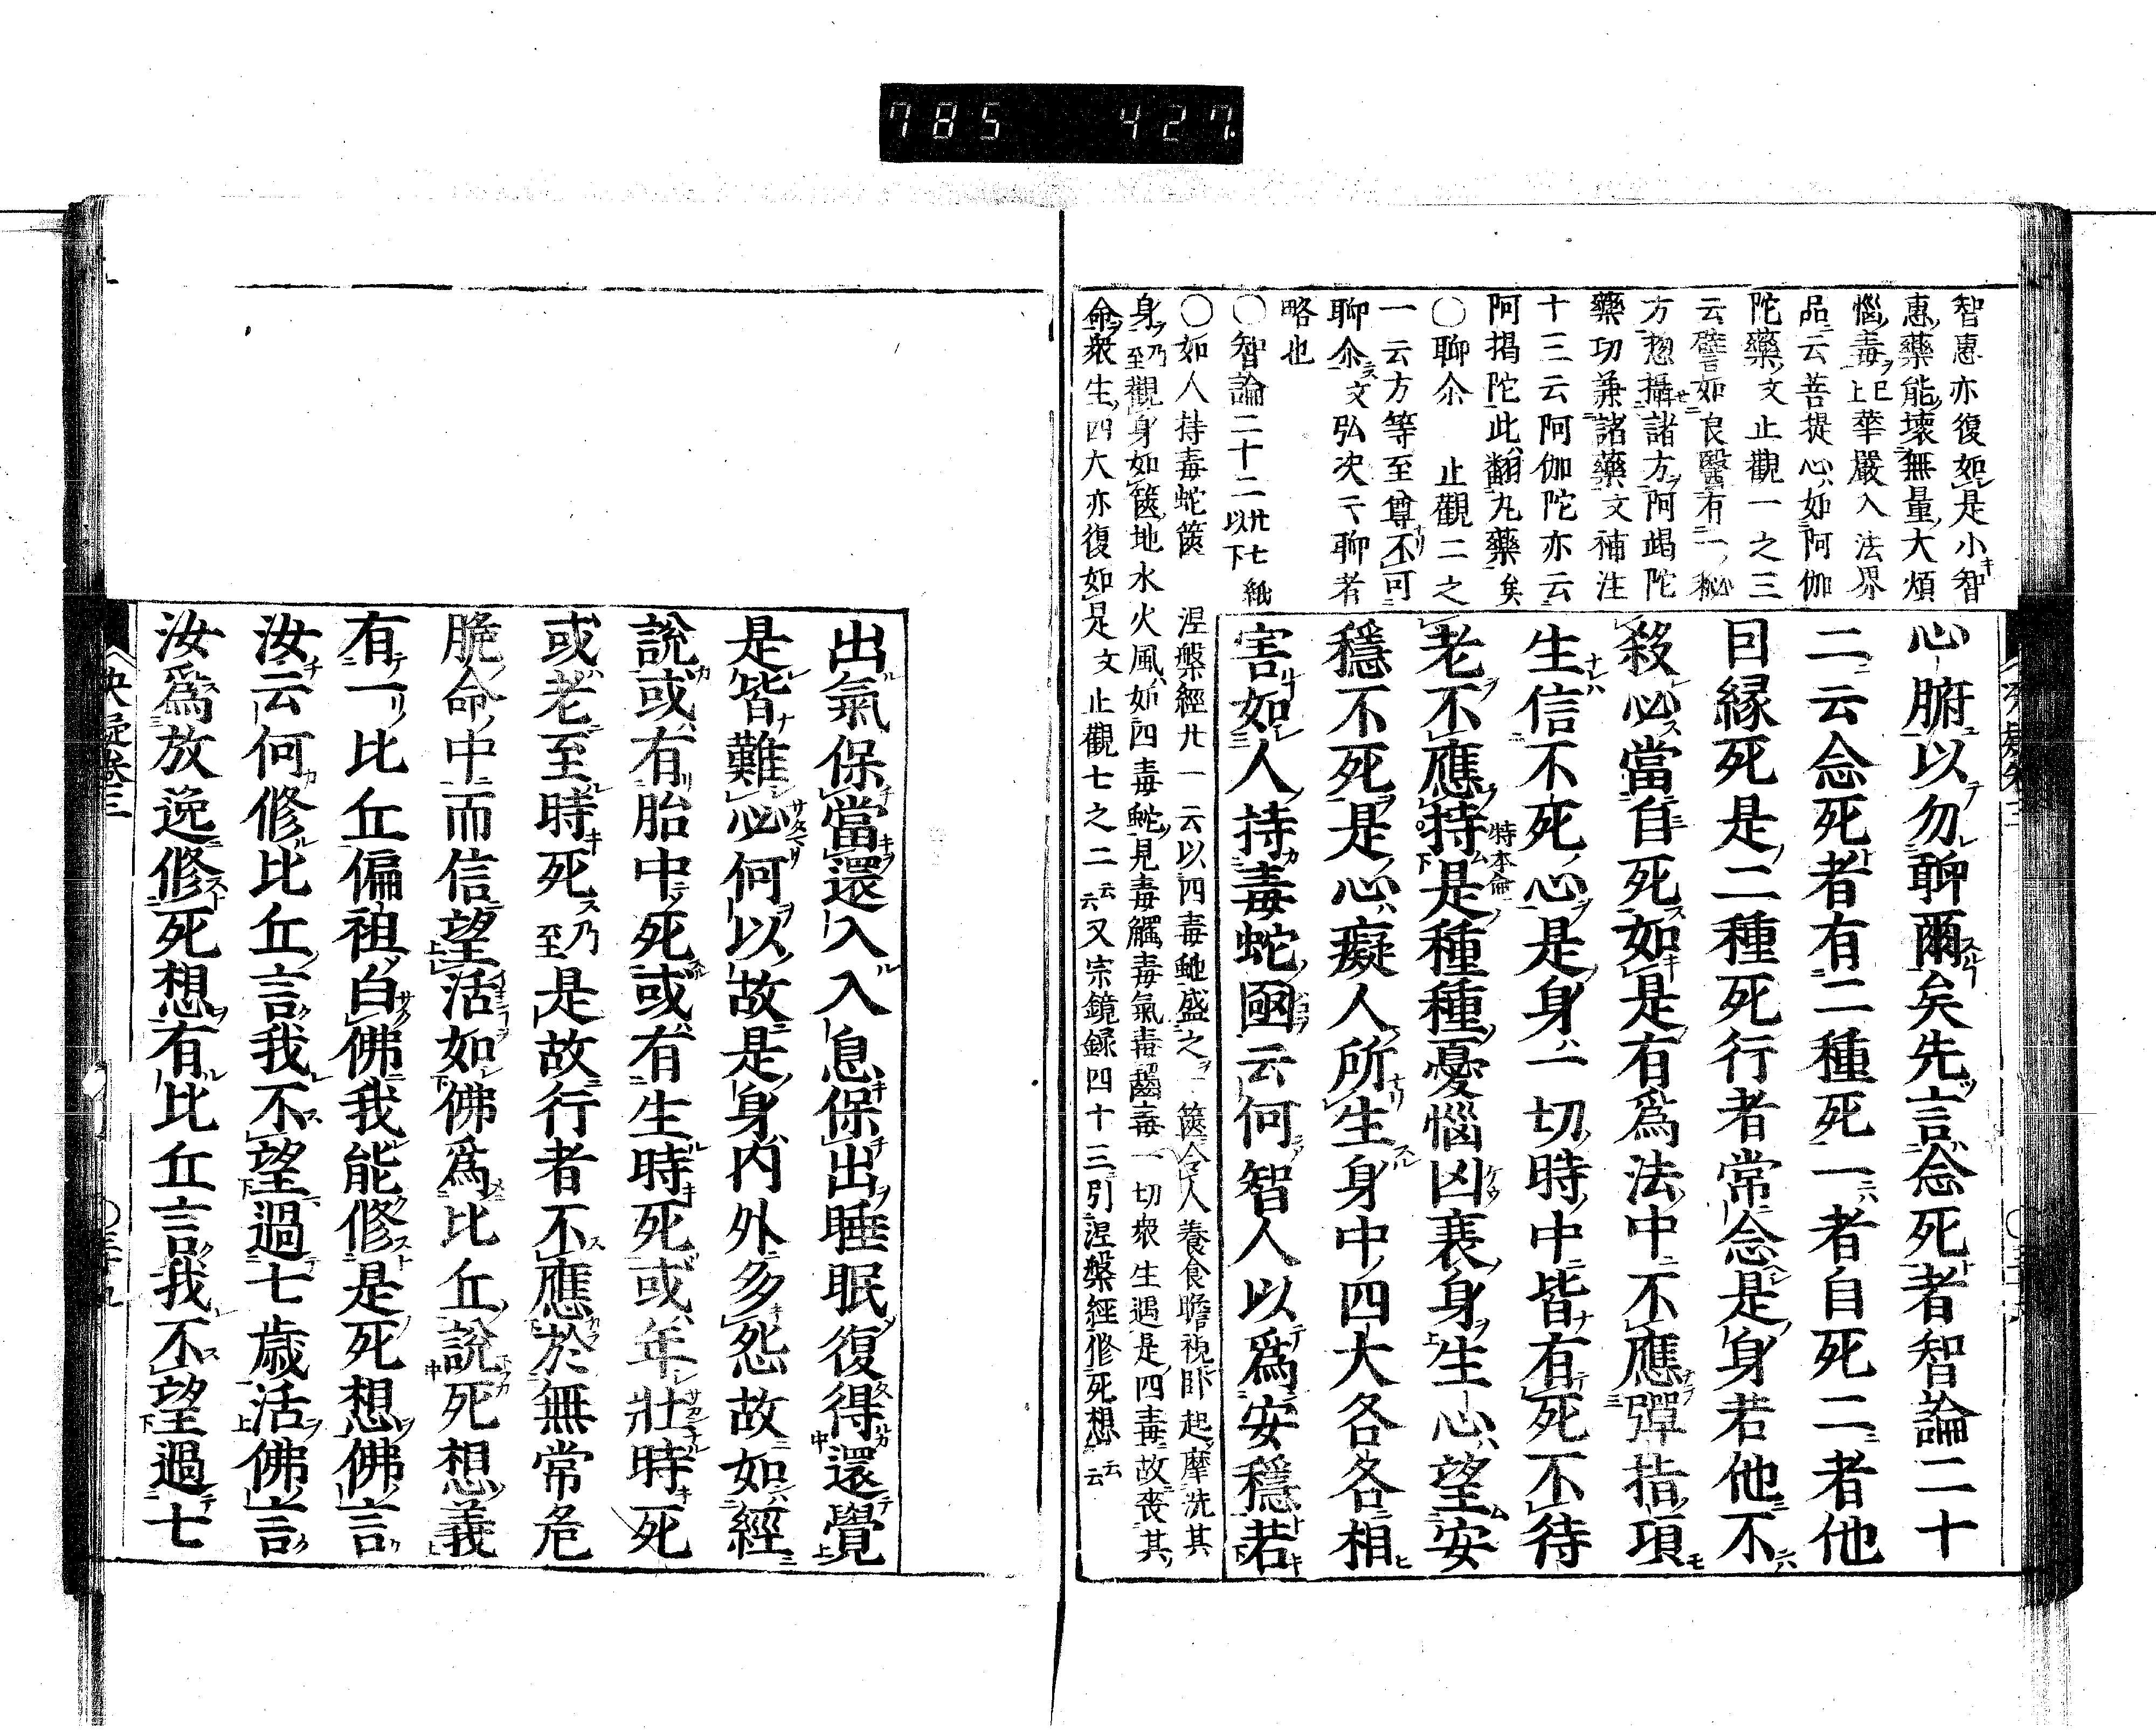 785 427
智惠亦復如是小智
惠藥能壞無量大煩
惱毒 已上 華嚴入法界
品云菩提心如阿伽
陀藥文止觀一之三
云譬如良醫有一秘
方惣攝諸方阿竭陀
藥功兼諸藥文補注
十三云阿伽陀亦云
阿揭陀此翻丸藥矣
〇聊尒 止觀二之
一云方等至尊不可
聊尒文弘決云聊者
略也
〇智論二十二 廿七紙以下
〇如人持毒蛇篋 涅槃經廿一云以四毒虵盛之一篋令人養食瞻視卧起摩洗其
身 乃至 觀身如篋地水火風如四毒虵見毒觸毒氣毒齧毒一切衆生遇是四毒故喪其
命衆生四大亦復如是文止觀七之二云云又宗鏡録四十三引涅槃經修死想云云
心腑以勿聊爾矣先言念死者智論二十
二云念死者有二種死一者自死二者他
因縁死是二種死行者常念是身若他不
殺必當自死如是有爲法中不應彈指頃
生信不死心是身一切時中皆有死不待
老不應持是種種憂惱凶衰身生心望安
特本侖
穩不死是心癡人所生身中四大各各相
害如人持毒蛇國云何智人以爲安穩若
出氣保當還入入息保出睡眠復得還覺
是皆難必何以故是身内外多怨故如經
說或有胎中死或有生時死或年壯時死
或老至時死 乃至 是故行者不應於無常危
脆命中而信望活如佛爲比丘說死想義
有一比丘偏袒白佛我能修是死想佛言
汝云何修比丘言我不望過七歳活佛言
汝爲放逸修死想有比丘言我不望過七
決疑卷三